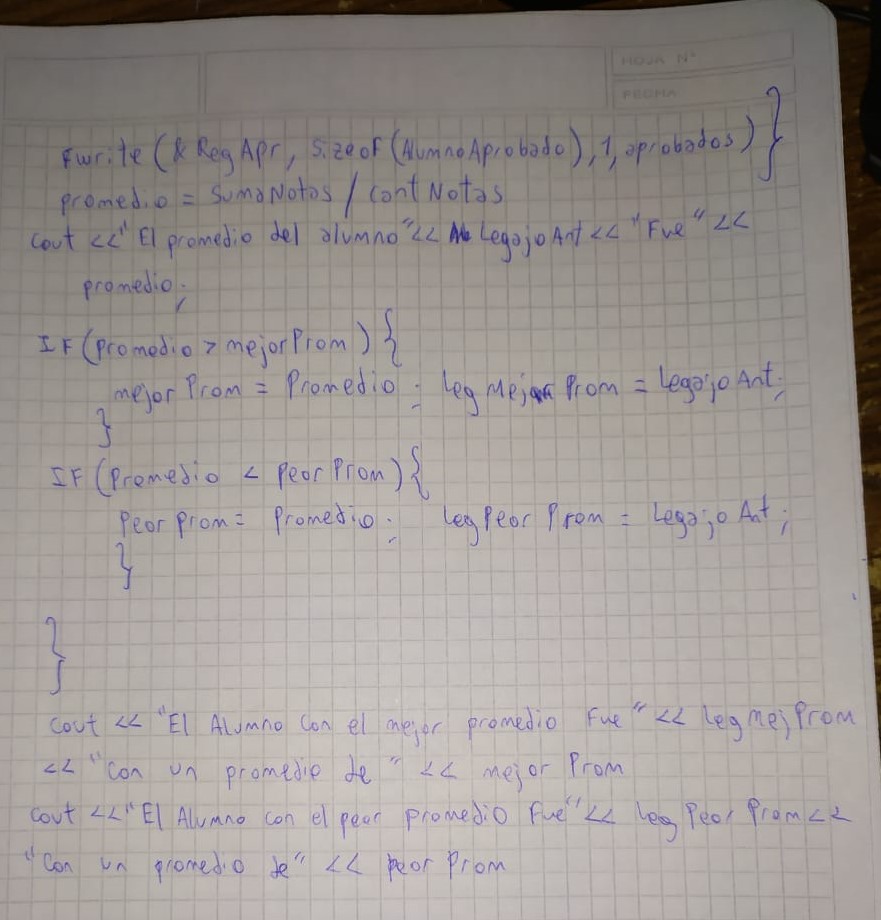 HOJA Nº
FECHA
Fwrite (& RegApr, sizeof (AlumnoAprobado), 1, aprobados) }
promedio = SumaNotas / cont Notas
Cout << " El promedio del alumno " << LegajoAnt << " Fue " <<
promedio;
IF (promedio > mejorProm) {
mejor Prom = Promedio ; leg Mejor Prom = Legajo Ant;
}
IF (Promedio < PeorProm) {
Peor prom = Promedio ; leg Peor Prom = Legajo Ant ;
}
}
cout << "El Alumno Con el mejor promedio Fue " << leg mej Prom
<< "Con un promedio de " << mejor Prom
cout << "El Alumno con el peor promedio Fue" << leg Peor Prom <<
"Con un promedio de" << peor Prom